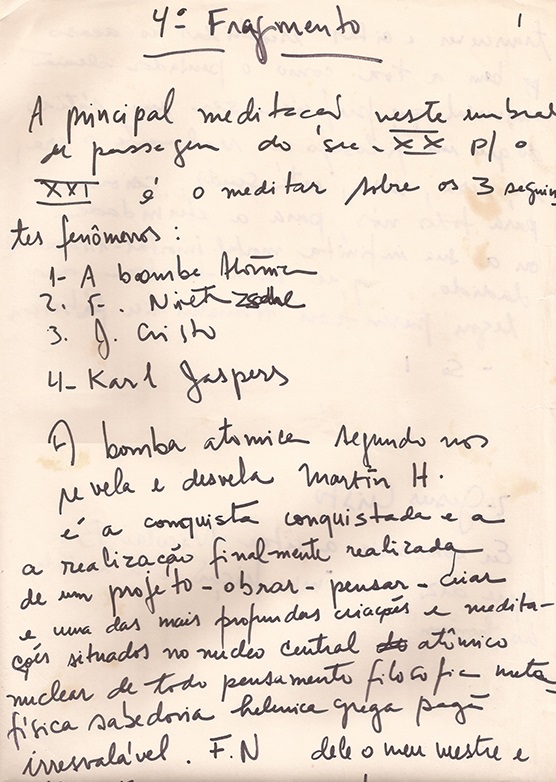 4º Fragmento
A principal meditação neste umbral
de passagem do séc. XX p/ o
XXI é o meditar sobre os 3 seguin
tes fenômenos:
1- A boomba Atômica
2. F. Nietzsche
3. J. Cristo
4- Karl Jaspers
A bomba atomica segundo nos
revela e desvela Martin H.
é a conquista conquistada e a
a realização finalmente realizada
de um projeto - obrar - pensar - criar
e uma das mais profundas criações e medita-
ções situados no nucleo central atômico
nuclear de todo pensamento filosofia meta
física sabedoria helenica grega pagã
irresvalável. F.N dele o meu mestre e